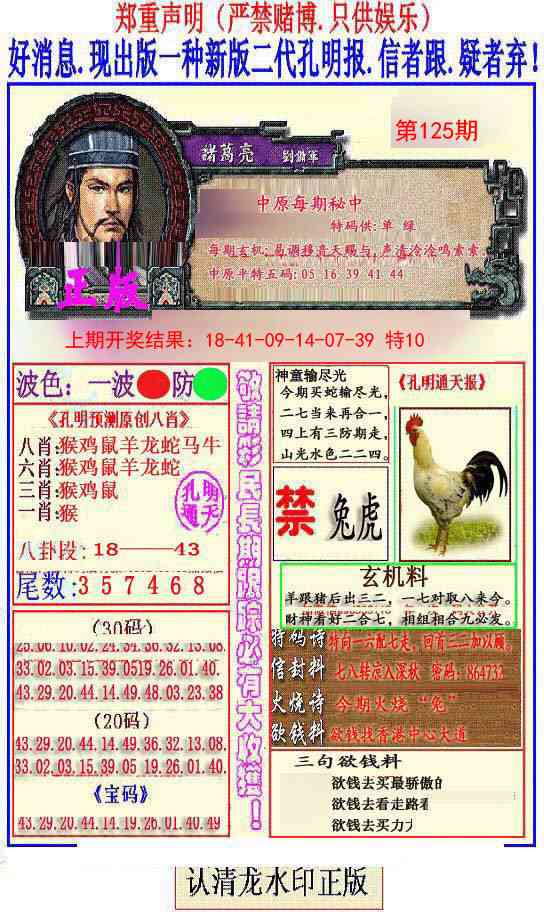 郑重声明（严禁赌博.只供娱乐）
好消息.现出版一种新版二代孔明报.信者跟.疑者弃!
第125期
諸葛亮 劉備軍
中原每期秘中
特码供:单 绿
每期玄机:易调移音天赐与,声清泠泠鸣索索.
中原平特五码:05 16 39 41 44
正版
上期开奖结果：18-41-09-14-07-39 特10
波色：一波 防
《孔明预测原创八肖》
八肖:猴鸡鼠羊龙蛇马牛
六肖:猴鸡鼠羊龙蛇
三肖:猴鸡鼠
一肖:猴
孔明
通天
八卦段:18——43
尾数:357468
(30码)
25.06.10.02.24.34.36.32.13.08.
33.02.03.15.39.0519.26.01.40.
43.29.20.44.14.49.48.03.23.38
(20码)
43.29.20.44.14.49.36.32.13.08.
33.02.03.15.39.05.19.26.01.40
《宝码》
43.29.20.44.14.19.26.01.40.49
敬請彩民長期跟踪必有大收獲！
神童输尽光
今期买蛇输尽光,
二七当来再合一,
四上有三防期走,
山光水色二二四。
禁 兔虎
《孔明通天报》
玄机料
羊跟猪后出三二，一七对取八来今。
财神看好二合七，相组相合九必发。
特码诗 特向一六配七走，回首三二加以顾。
信封料 七八转点入深秋 密码：864733
火烧诗 今期火烧“兔”
欲钱料 欲钱找香港中心大道
三句欲钱料
欲钱去买最骄傲的
欲钱去看走路看
欲钱去买力
认清龙水印正版